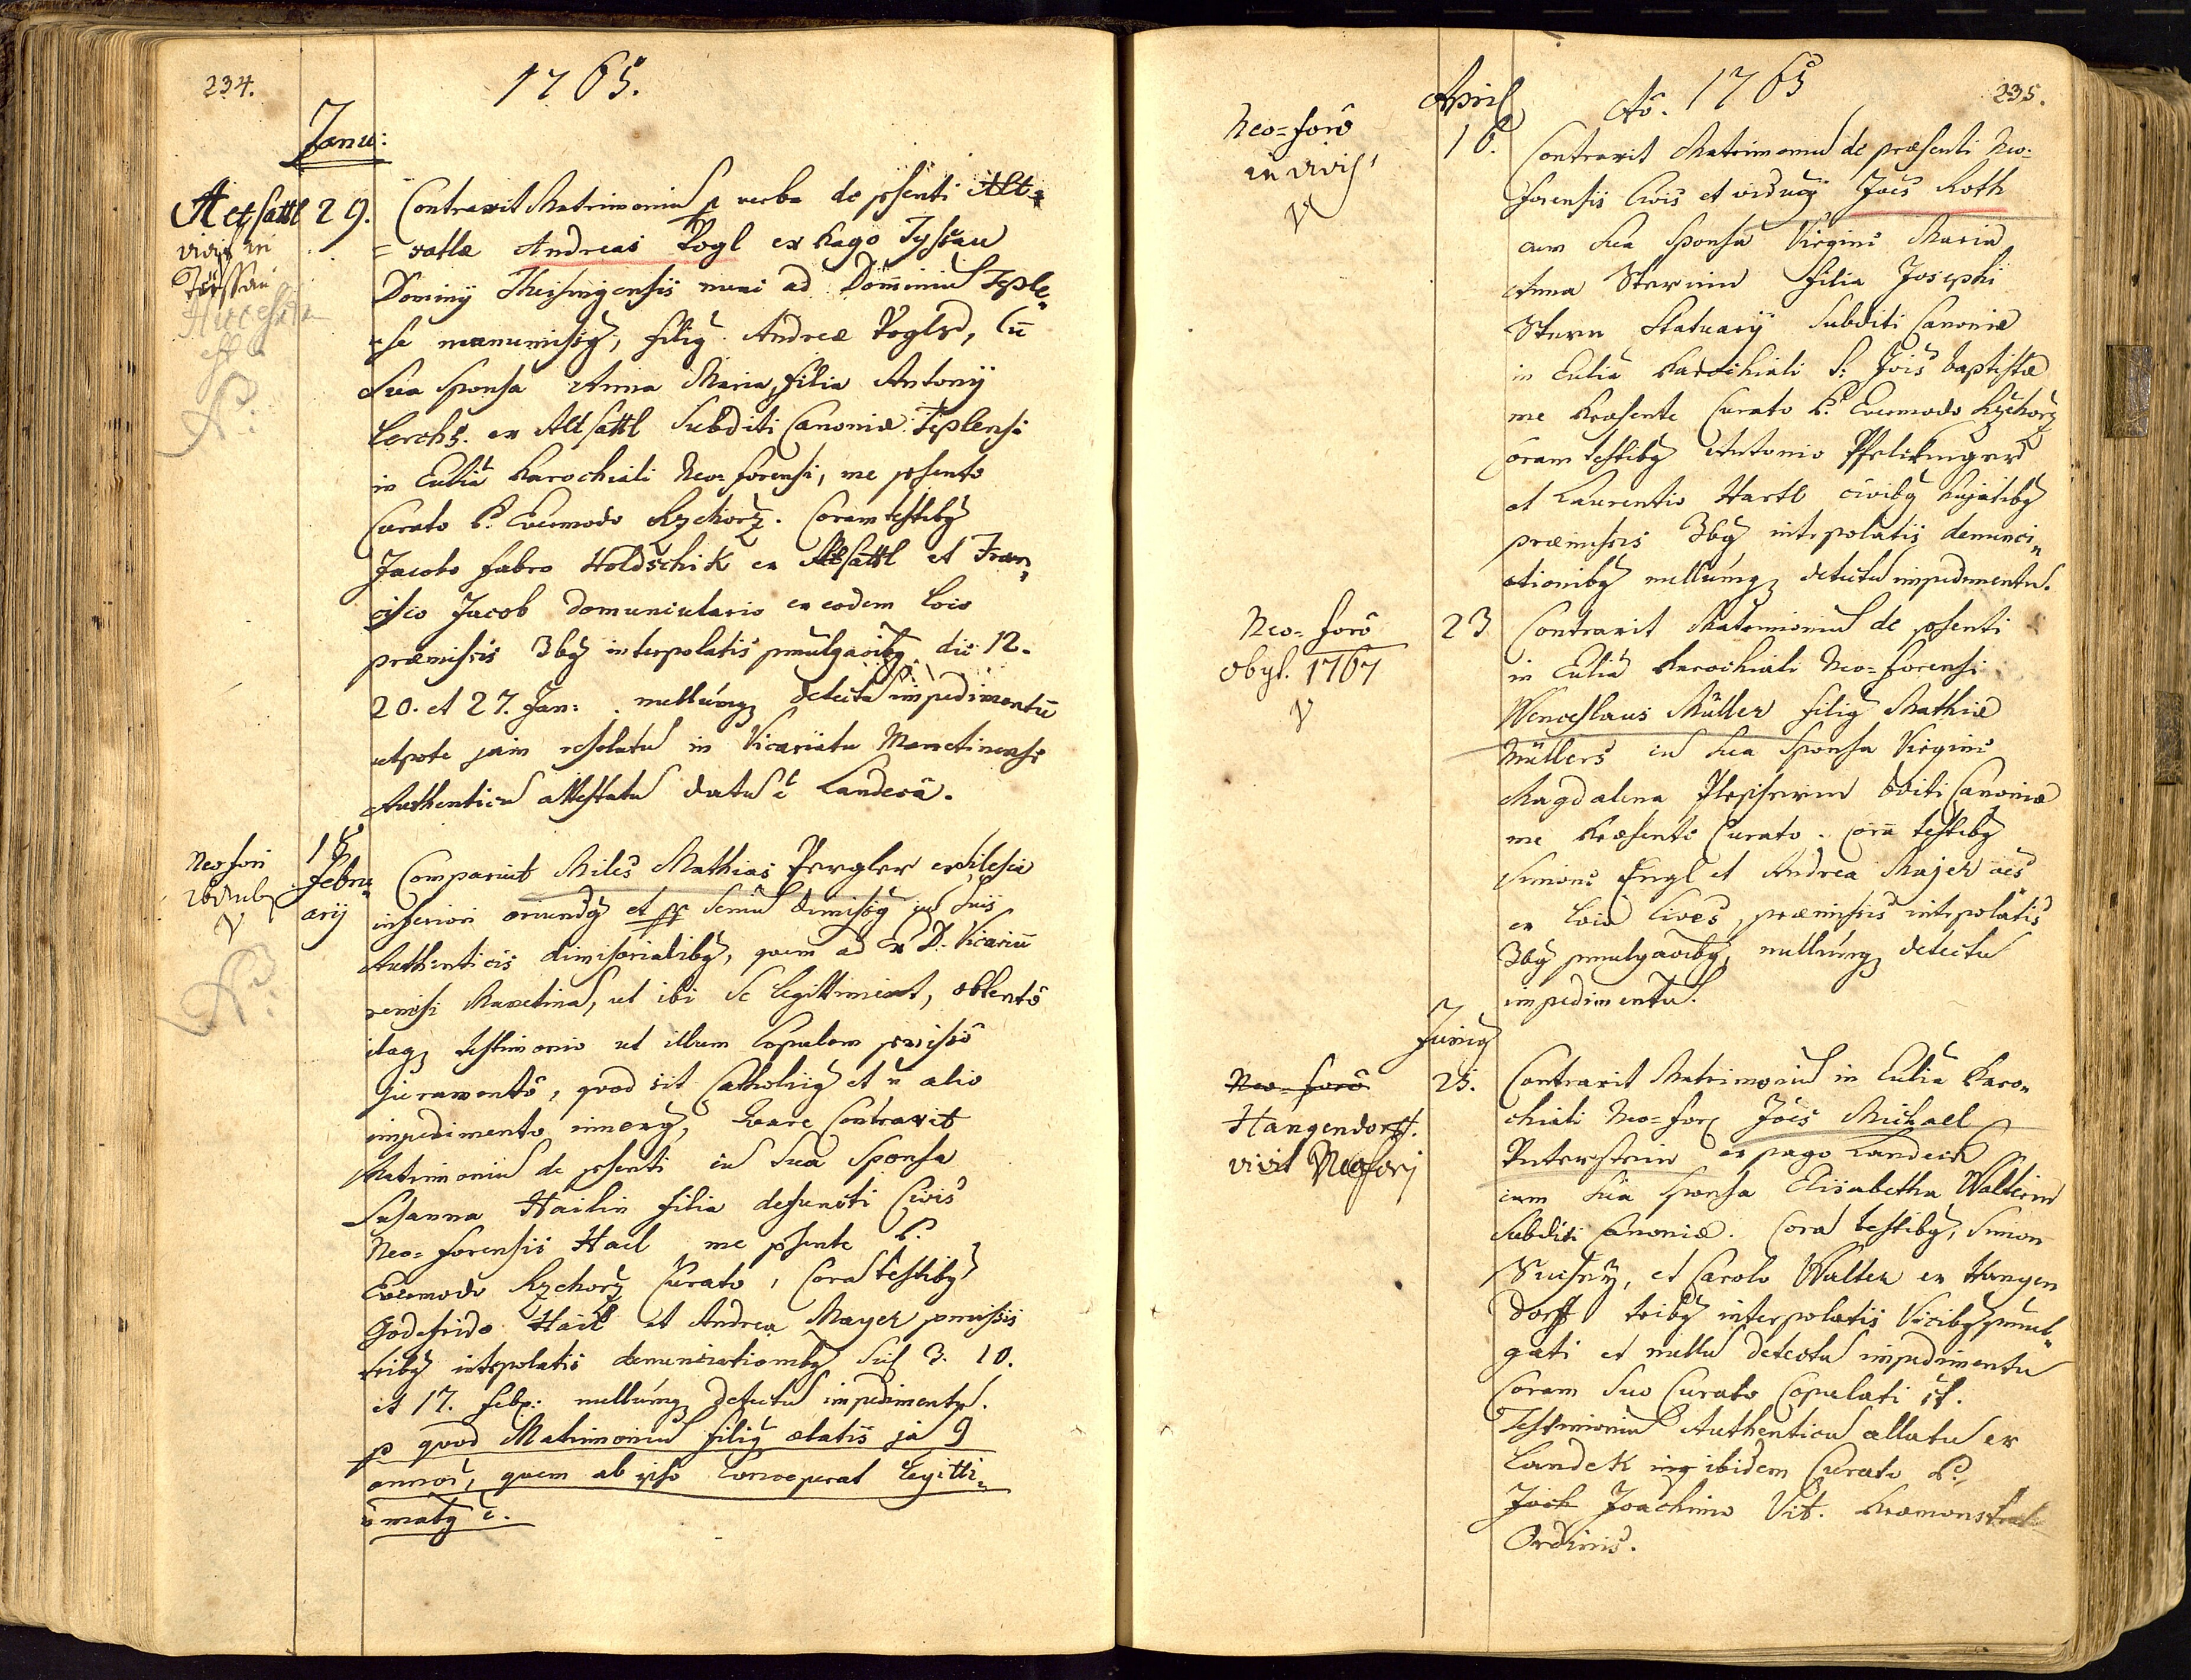 234.
1765.
Janu:
Altsattl 29.
vivit in
Contraxit Matrimoniu p verba de psenti Alt=
=satlæ Andreas Vogl ex Pago Tyssau
Dominij Theisingensis nunc ad Dominiu Teple
=se manumisg, filig Andreæ Vogls, Cu
Sua Sponsa Anna Maria, filia Antonij
Lerchs. ex Altsattl Subditi Canoniæ Teplensi
in Eccliâ Parochiali Neo=forensi, me psente
Curato P. Evermodo Rzehorz. Coram testibg
Jacobo fabro Holdschik ex Altsattl et Fran„
cisco Jacob domunculario ex eodem loco
præmissis 3bg interpolatis pmulgaoibg die 12.
20. et 27. Jan: nullumq detectu impedimentu
utpote jam in Vicariatu
Authenticu attestatu datu e Landecâ.
Neofori
15
Febru„
arij
Comparuit Miles Mathias Pergler ex Silesia
inferiori oriundg et p Seniu dimissg cu Suis
Authenticis dimissorialibg, quem ad R D. Vicariu
remisi, ut ibi Se legittimient, obtento
itaq testimonio ut illum Copulem pmisso
juramento, quod sit Catholicg et n alio
impedimento, Quare Contraxit
Matrimoniu de psenti cu Sua Sponsa
Susanna Hailin filia defuncti Civis
Neo=forensis Hael me psente P.
Evermodo Rzehorz Curato, Cora testibg
Godefrido Hail et Andrea Mayer pmissis
tribg intepolatis denunciationibg Scil 3. 10.
et 17. feb: nullumq detectu impedimentu.
p quod Matrimoniu filig ætatis ja 9
annor, quem ab ipso Conceperat legitti„
„matg e.
April Aô. 1765 235.
Neo=forô
in vivis
16. Contraxit Matrimoniu de præsenti Neo=
forensis Civis et vidug Joes Roth
cum Sua Sponsa Virgine Maria
Anna Sternin filia Josephi
Stern Statuarij Subditi Canoniæ
in Eccliâ Parochiali S: Jois baptistæ
me Præsente Curato P. Evermodo Rzehorz
Coram testibg Antonio
et Laurentio Hartl civibg hujatibg
præmissis 3bg intepolatis denunci„
ationibg nullumq detectu impedimentu.
Neo=forô
obijt. 1767
23 Contraxit Matrimoniu de psenti
in Eccliâ Parochiali Neo=forensi
Wenceslaus Müller filig Mathiæ
Müllers cu Sua Sponsa Virgine
Magdalena bditi Canoniæ
me Præsente Curato. Cora testibg
Simone Engl et Andrea Majer oes
ex loco Cives, præmissis intepolatis
3bg pmulgaoibg, nullumq detectu
impedimentu.
Junig
Neo=forô
Hangendorff.
vivit Neofori
25. Contraxit Matrimoniu in Eccliâ Paro„
chiali Neo=for Joes Michael
ex pago Landeck
cum Sua Sponsa Elisabetha Walterin
Subditi Canoniæ. Cora testibg, Simon
et Carolo Walter ex Hangen
dorff tribg interpolatis Vicibg pmul„
gati et nullu detectu impedimentu
Coram Suo Curato Copulati st.
Testimoniu Authenticu allatu ex
Landek ibidem Curato P.
Joachimo Vit. Præmonstrat
Ordinis.